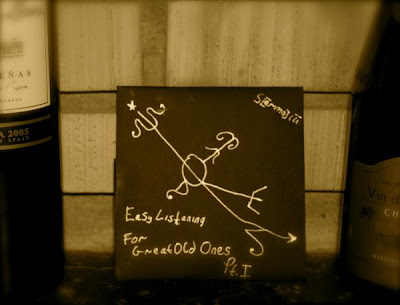 Easy Listening
For
Great Old Ones
Pt I
EÑAS
2005
Vin d
CH